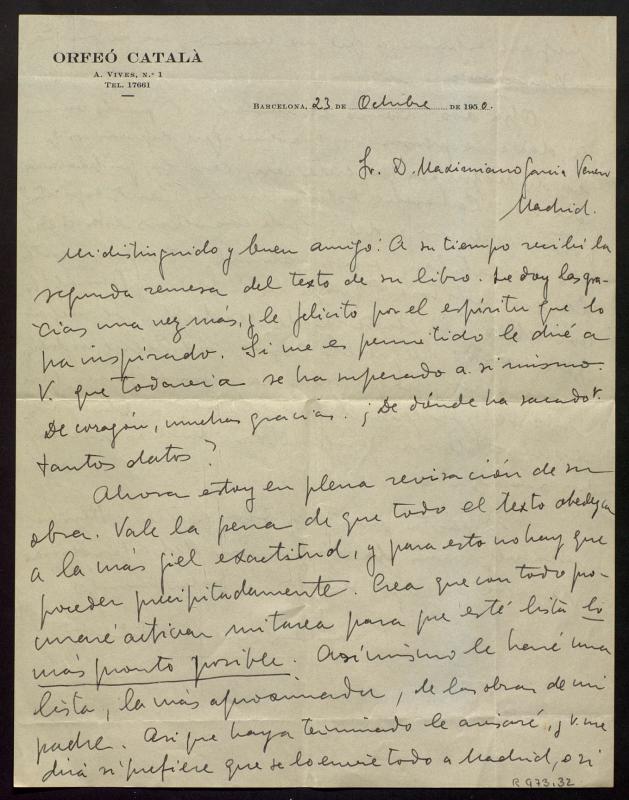 ORFEÓ CATALÀ
A. VIVES, N.º 1
TEL. 17661
BARCELONA, 23 DE Octubre DE 1950.
Sr. D. Maximiano Garcia Venero
Madrid.
Mi distinguido y buen amigo: A su tiempo recibí la
segunda remesa del texto de su libro. Le doy las gra-
cias una vez más, y le felicito por el espíritu que lo
ha inspirado. Si me es permitido le diré a
V. que todavia se ha superado a si mismo.
De corazón, muchas gracias. ¿De dónde ha sacado V.
tantos datos?
Ahora estoy en plena revisación de su
obra. Vale la pena de que todo el texto obedezca
a la más fiel exactitud, y para esto no hay que
proceder precipitadamente. Crea que con todo pro-
curaré activar mi tarea para que esté lista lo
más pronto posible. Asímismo le haré una
lista, la más aproximada, de las obras de mi
padre. Asi que haya terminado le avisaré, y V. me
dirá si prefiere que se lo envie todo a Madrid, o si
R. 973,32